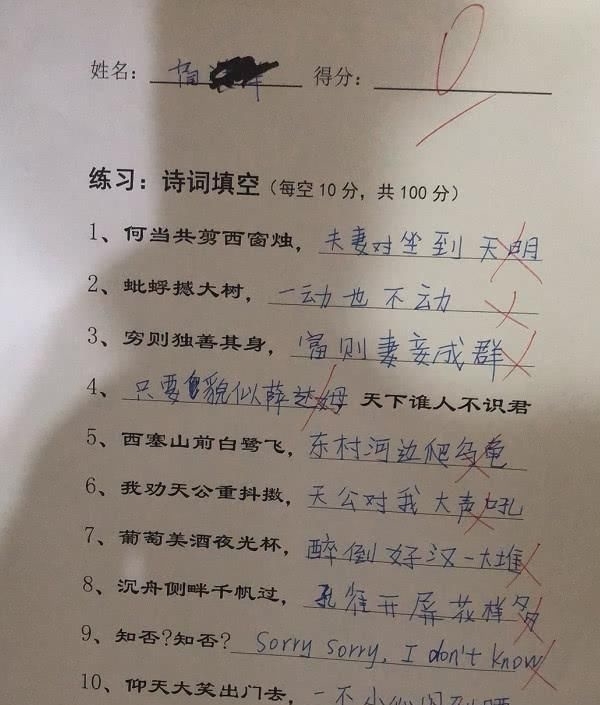 姓名: 得分: 0
练习：诗词填空（每空10分，共100分）
1、何当共剪西窗烛，夫妻对坐到天明
2、蚍蜉撼大树，一动也不动
3、穷则独善其身，富则妻妾成群
4、只要貌似萨达姆 天下谁人不识君
5、西塞山前白鹭飞，东村河边爬乌龟
6、我劝天公重抖擞，天公对我大声吼
7、葡萄美酒夜光杯，醉倒好汉一大堆
8、沉舟侧畔千帆过，孔雀开屏花样多
9、知否?知否? Sorry sorry, I don't know
10、仰天大笑出门去，一不小心